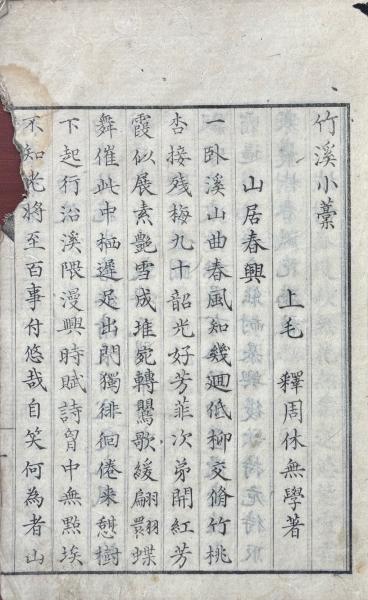 竹溪小藁
上毛　釋周休無學著
山居春興
一臥溪山曲春風知幾廻低柳交脩竹桃
杏接殘梅九十韶光好芳菲次弟開紅芳
霞似展素艷雪成堆宛轉鸎歌緩翩翾蝶
舞催此中栖遲足出門獨徘徊倦来憇樹
下起行沿溪隈漫興時賦詩胷中無點埃
不知老將至百事付悠哉自笑何為者山